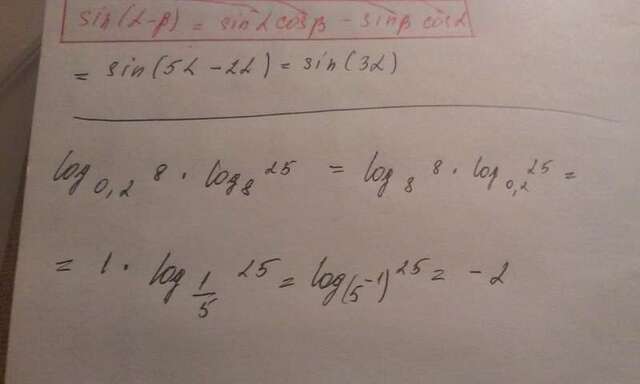 sin(α-β) = sinα cosβ - sinβ cosα
= sin(5α - 2α) = sin(3α)
log₀,₂ 8 · log₈ 25 = log₈ 8 · log₀,₂ 25 =
= 1 · log_{1/5} 25 = log_{(5⁻¹)} 25 = -2